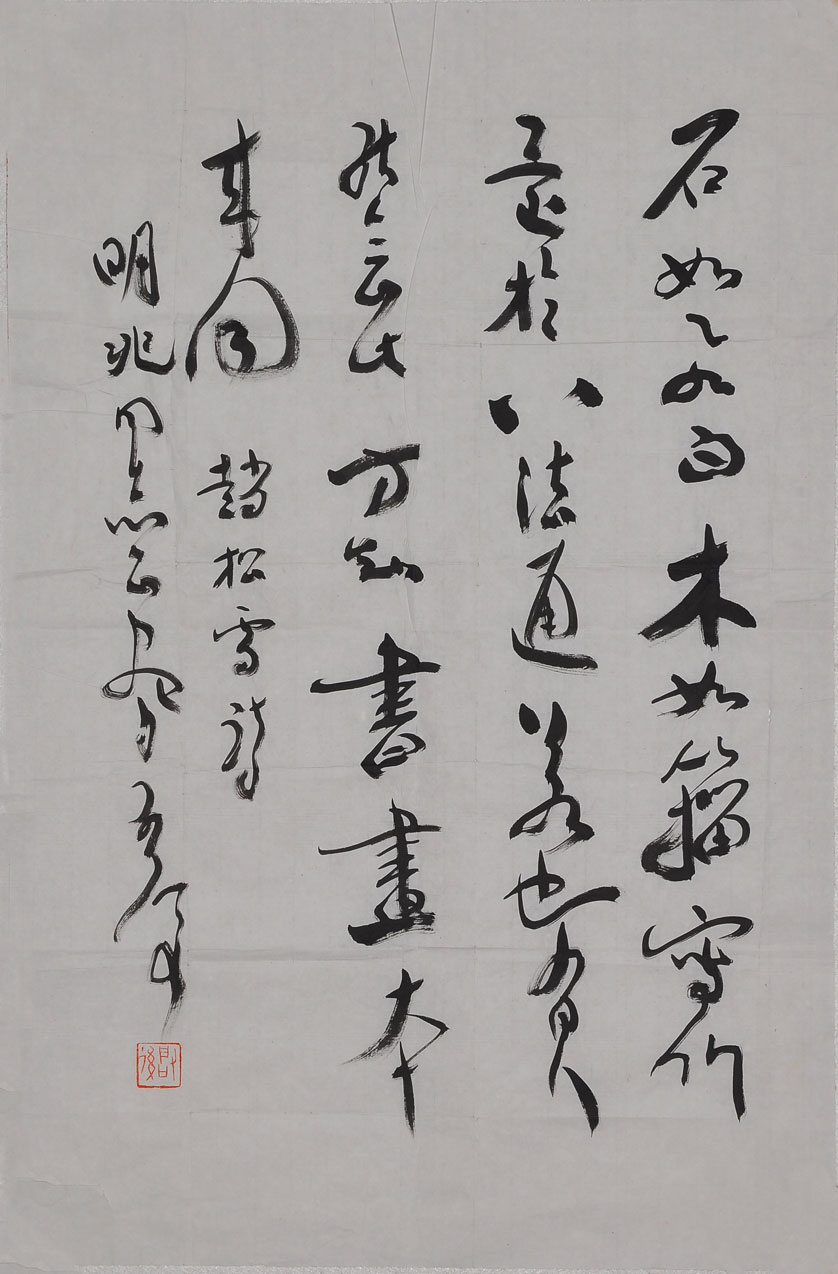 石如飛白木如籀寫竹
還於八法通若也有人
能會此方知書畫本
來同 趙松雪詩
明兆同志